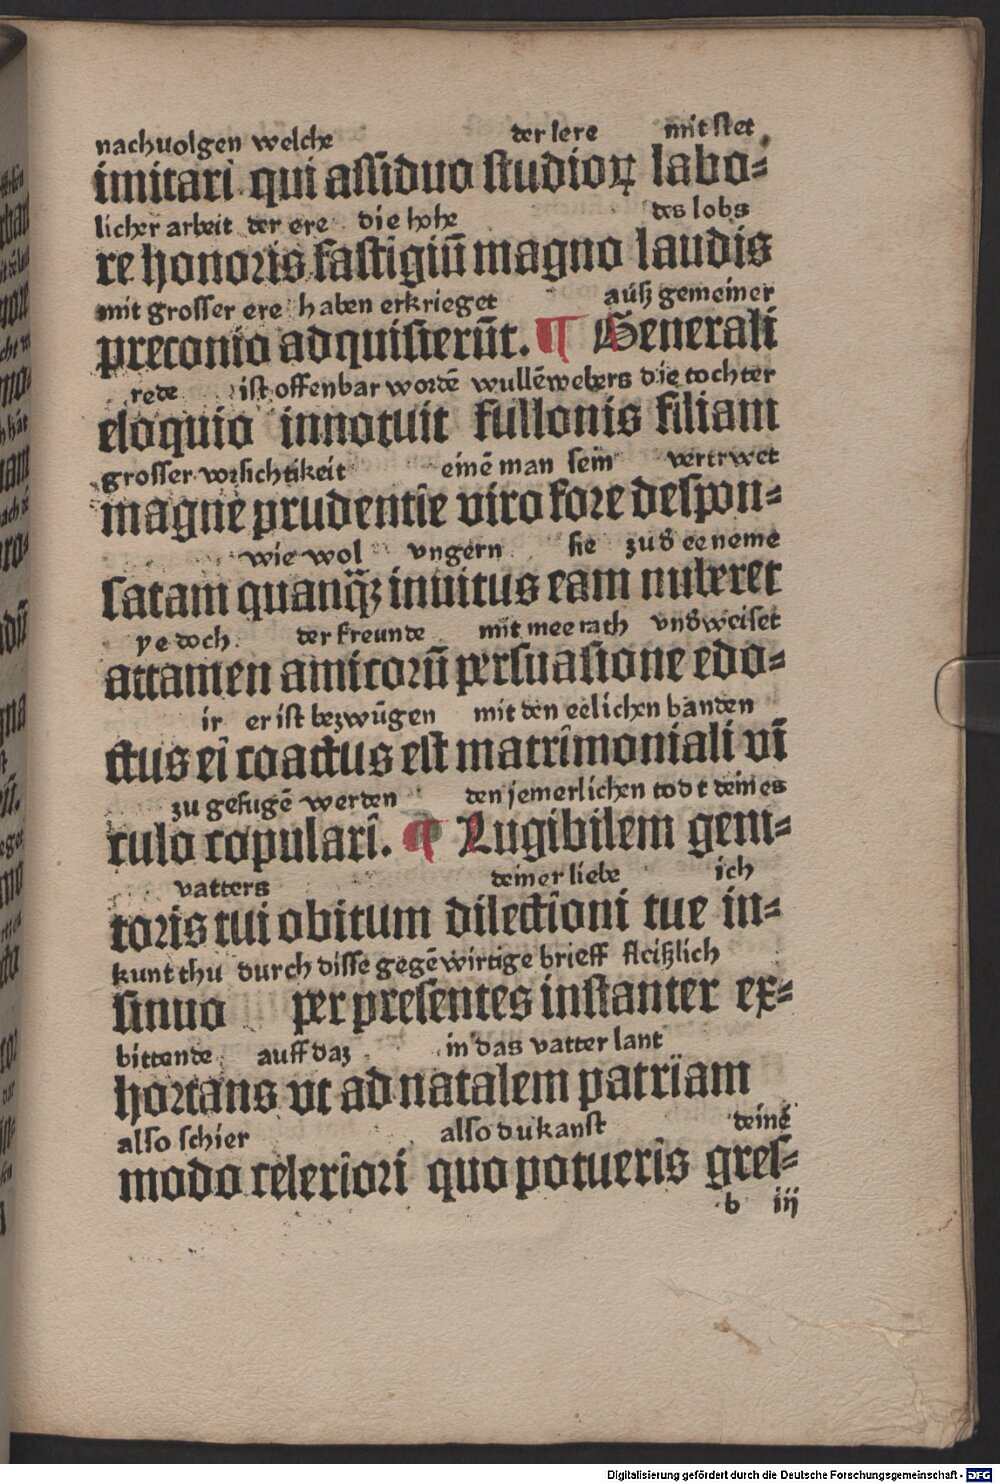 nachuolgen welche der lere mit stet
imitari qui assiduo studioꝝ labo⸗
licher arbeit der ere die hohe des lobs
re honoris fastigiū magno laudis
mit grosser ere haben erkrieget auſz gemeiner
preconio adquisierūt. ¶ Generali
rede ist offenbar wordē wullēwebers die tochter
eloquio innotuit fullonis filiam
grosser vorsichtikeit einē man sein vertrwet
magne prudentie viro fore despon⸗
wie wol vngern sie zu d̛ ee neme
satam quanqʒ̄ inuitus eam nuberet
ye doch der freunde mit mee rath vnd̛weiset
attamen amicorū persuasione edo⸗
ir er ist bezwūgen mit den eelichen banden
ctus ei coactus est matrimoniali vi
zu gefugē werden den jemerlichen todt deines
culo copulari. ¶ Lugibilem geni⸗
vatters deiner liebe ich
toris tui obitum dilectioni tue in⸗
kunt thu durch disse gegēwirtige brieff fleißlich
sinuo per presentes instanter ex⸗
bittende auff daz in das vatter lant
hortans vt ad natalem patriam
also schier also du kanst deinē
modo celeriori quo potueris gres⸗
b iij
Digitalisierung gefördert durch die Deutsche Forschungsgemeinschaft - DFG